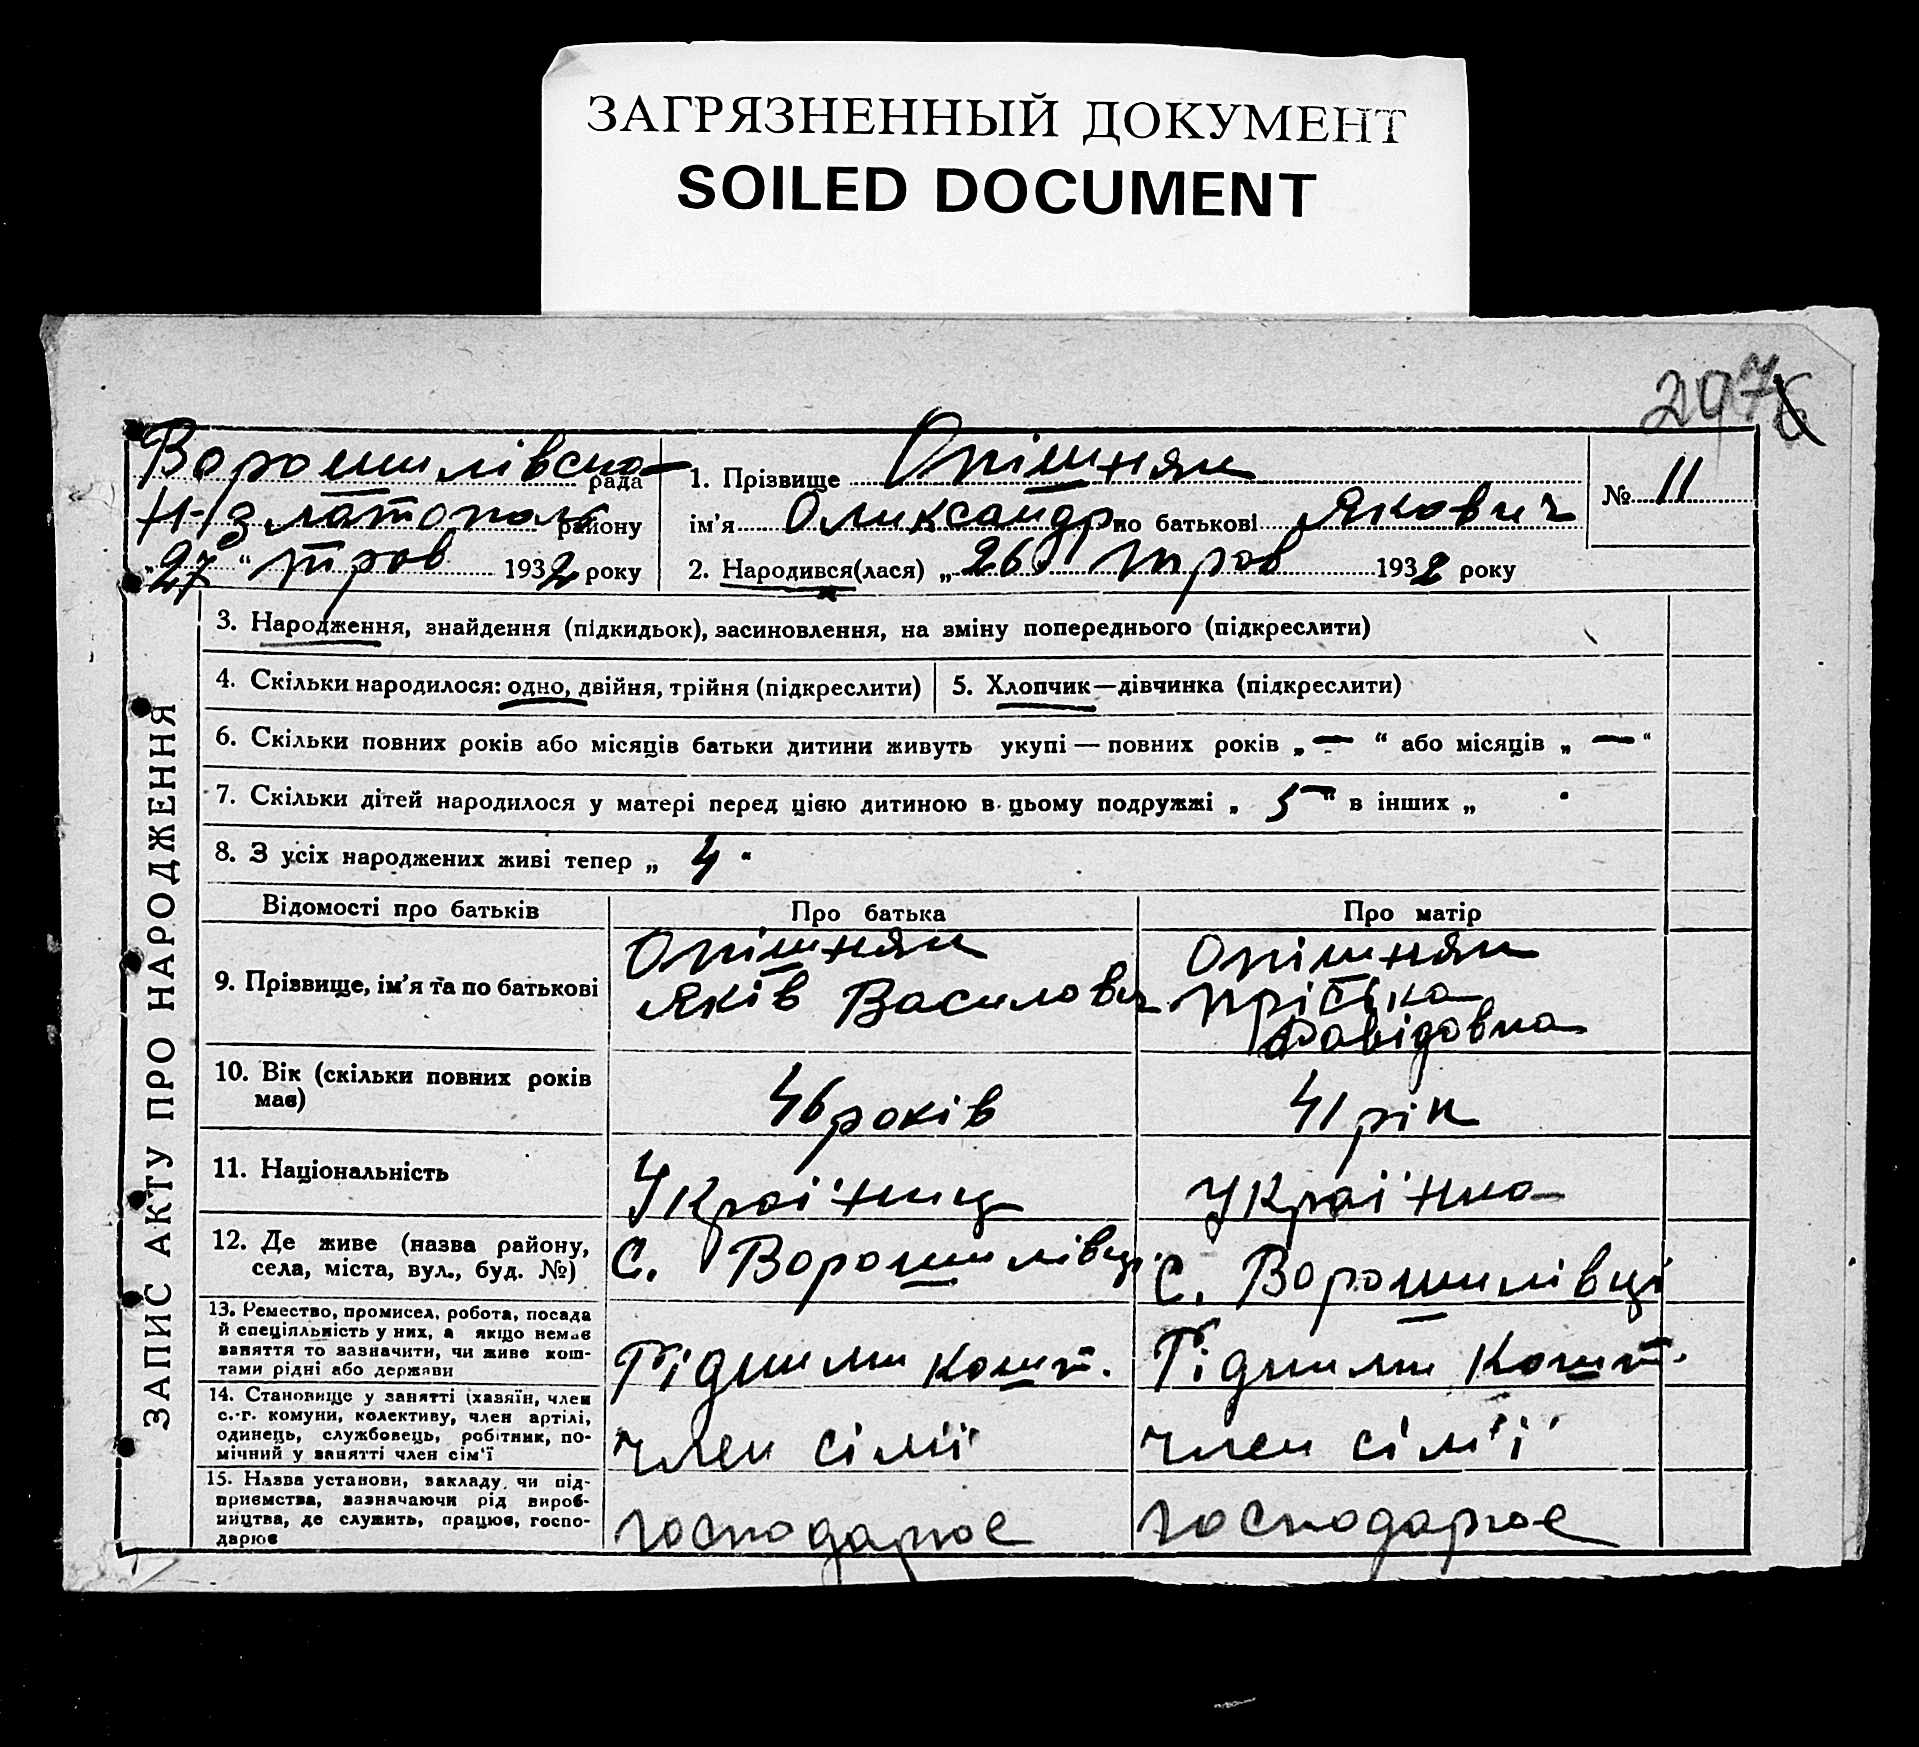 ЗАГРЯЗНЕННЫЙ ДОКУМЕНТ
SOILED DOCUMENT
297
ЗАПИС АКТУ ПРО НАРОДЖЕННЯ
Ворошилівська рада
Н-Златополь району
„27“ тров 1932 року
1. Прізвище Опішняк
ім'я Оликсандр по батькові Якович
2. Народився(лася) „26“ тров 1932 року
№ 11
3. Народження, знайдення (підкидьок), засиновлення, на зміну попереднього (підкреслити)
4. Скільки народилося: одно, двійня, трійня (підкреслити)
5. Хлопчик—дівчинка (підкреслити)
6. Скільки повних років або місяців батьки дитини живуть укупі — повних років „—“ або місяців „—“
7. Скільки дітей народилося у матері перед цією дитиною в цьому подружжі „5“ в інших „
8. З усіх народжених живі тепер „4“
Відомості про батьків
Про батька
Про матір
9. Прізвище, ім'я та по батькові
Опішняк
Яків Василович
Опішняк
Пріська
Давідовна
10. Вік (скільки повних років
має)
46 років
41 рік
11. Національність
Україниц
Українка
12. Де живе (назва району,
села, міста, вул., буд. №)
С. Ворошилівці
С. Ворошилівці
13. Ремество, промисел, робота, посада
й спеціяльність у них, а якщо немає
заняття то зазначити, чи живе кош-
тами рідні або держави
Рідними кошт.
Рідними кошт.
14. Становище у занятті (хазяїн, член
с.-г. комуни, колективу, член артілі,
одинець, службовець, робітник, по-
мічний у занятті член сім'ї
член сімії
член сім'ї
15. Назва установи, закладу, чи під-
приємства, зазначаючи рід вироб-
ництва, де служить, працює, госпо-
дарює
господарює
господарює